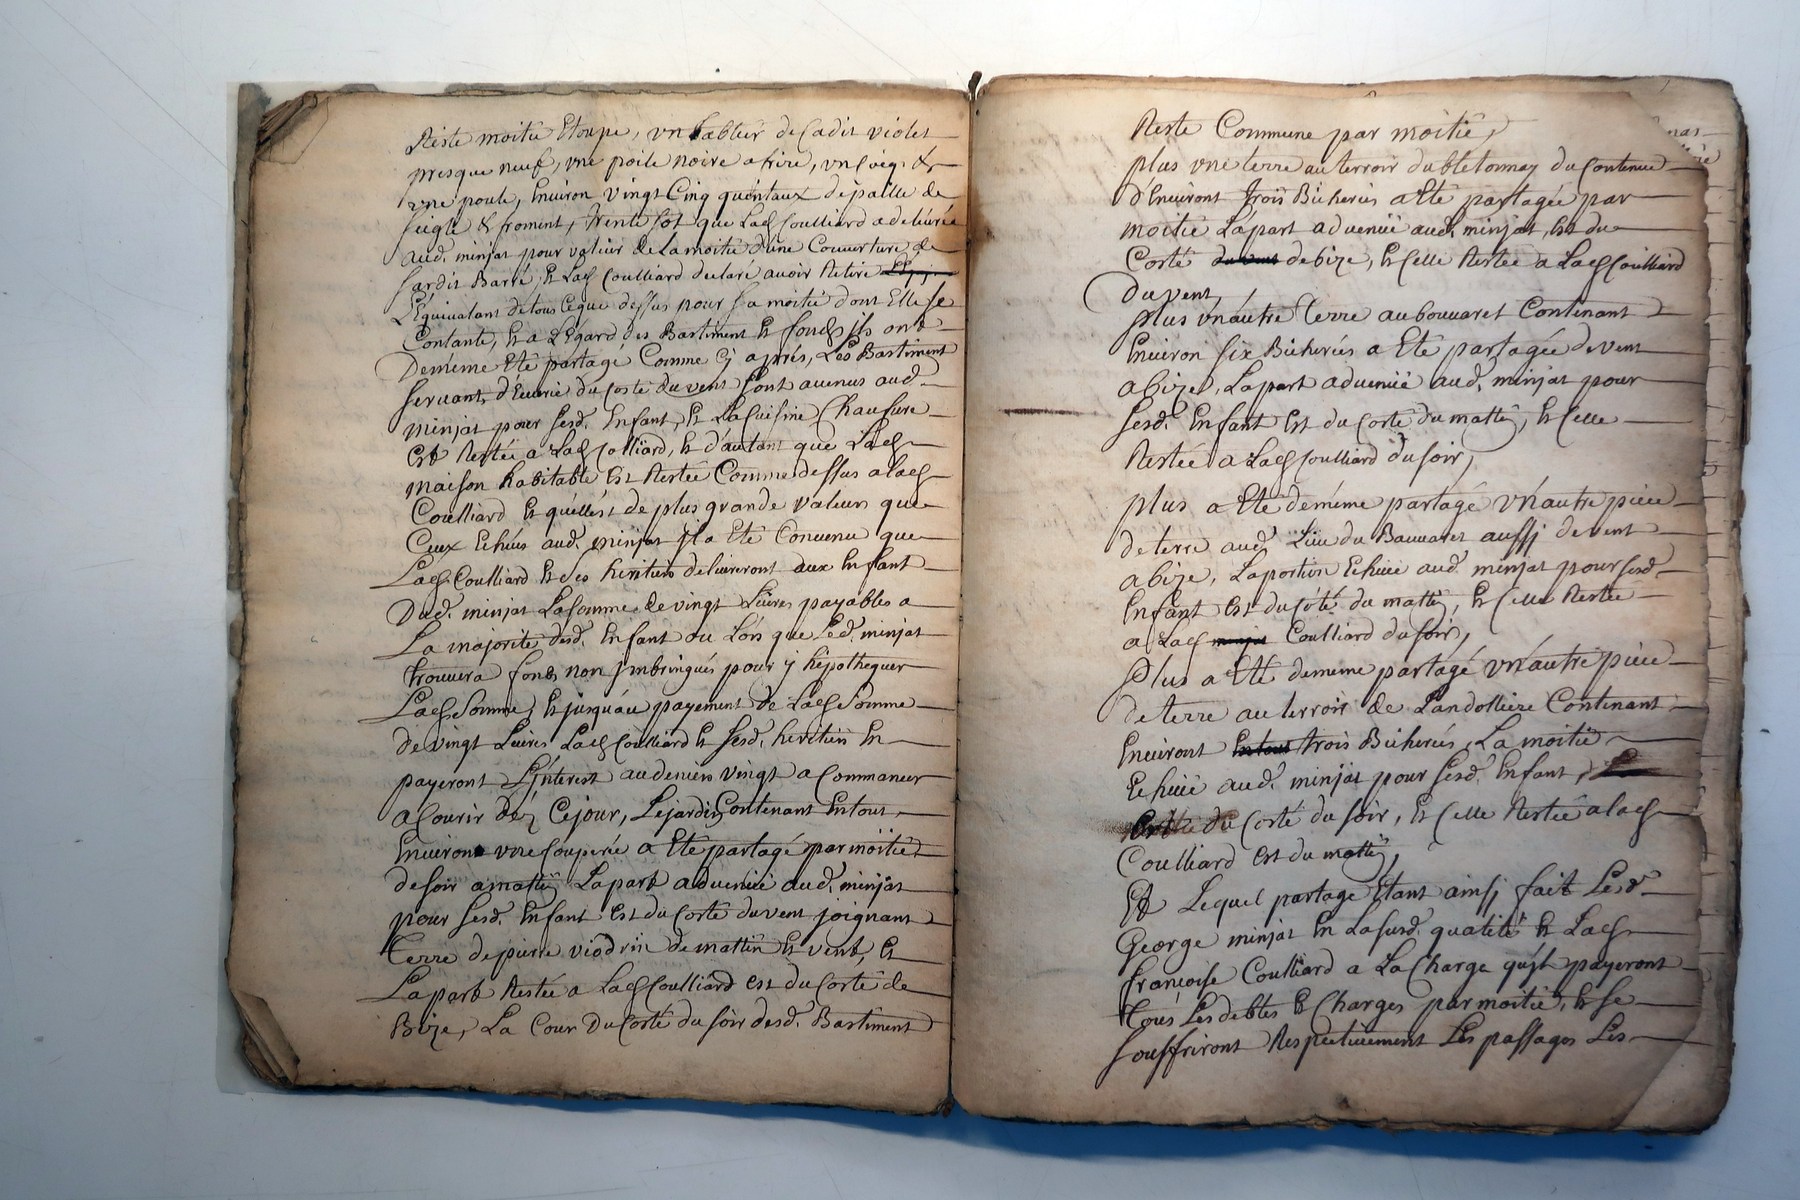 Reste moitié Etoupe, vn tablier de Cadis violet
presque neuf, vne poile noire a frire, vn Coeq &
vne poule, Enuiron vingt Cinq quintaux de paille de
seigle & froment, trente sol que Lad. Coulliard a deliurée
aud. minjat pour valeur de La moitié d'une Couuerture de
sardis Barré, Et Lad. Coulliard declaré auoir Retiré
L'Equiualant de tous Ceque dessus pour sa moitié dont Elle se
Contante, Et a L'Egard des Bastiment Et fonds ils ont
Deméme Eté partagé Comme Cy aprés, Les Bastiment
seruant d'Ecurie du Costé du vent sont auenus aud.
minjat pour sesd. Enfant, Et La Cuisine Chaufure
Est Restée a Lad. Colliard, Et d'autant que Lad.
maison habitable Est Restée Comme dessus a lad.
Coulliard Et qu'elle Est de plus grande valeurs que
Ceux Echûes aud. minjat Jl a Eté Conuenu que
Lad. Coulliard Et ses heritiers deliureront aux Enfant
Dud. minjat La somme de vingt Liures payables a
La majorité desd. Enfant ou Lors que Led. minjat
trouuera fonds non Jmbringués pour y hépothequer
Lad. Somme, Et jusqu'au payement de Lad. Somme
de vingt Liures Lad. Coulliard Et sesd. heritiers En
payeront L'jnterest au deniers vingt a Commancer
a Courir dez Cejour, Le jardin Contenant En tout
Enuiron vne Couperée a Eté partagé par moitié
de soir a mattin La part aduenüe aud. minjat
pour sesd. Enfant Est du Costé du vent joignant
Terre de pierre viodrin de mattin Et vent, Et
La part Restée a Lad. Coulliard Est du Costé de
Bize, La Cour Du Costé du soir desd. Bastiment
Reste Commune par moitié,
plus vne terre au terroir du bletonnay du Contenue
d'Enuiront trois Bicherées a Eté partagée par
moitié La part aduenüe aud. minjat, Est du
Costé de bize, Et Celle Restée a Lad. Coulliard
Du vent,
plus vn autre Terre au bouuaret Contenant
Enuiron six Bicherées a Eté partagée de vent
a bize, La part aduenüe aud. minjat pour
sesd. Enfant Est du Costé du mattin, Et Celle
Restée a Lad. Coulliard du soir,
plus a Eté deméme partagé vn autre piece
de terre aud. Lieu du Bauuaret aussj de vent
a bize, La portion Echüe aud. minjat pour sesd.
Enfant Est du Côté du mattin, Et Celle Restée
a Lad. Coulliard du soir,
Plus a Eté deméme partagé vn autre piece
de terre au terroir de Landolliere Contenant
Enuiront trois Bicherées, La moitié
Echüe aud. minjat pour sesd. Enfant,
du Costé du soir, Et Celle Restée a lad.
Coulliard Est du mattin,
Et Lequel partage Etant ainsj fait Lesd.
George minjat En La susd. qualité Et Lad.
françoise Coulliard a La Charge qu'jl payeront
Tous Les debtes Et Charges par moitié, Et se
souffriront Respectiuement Les passages Les